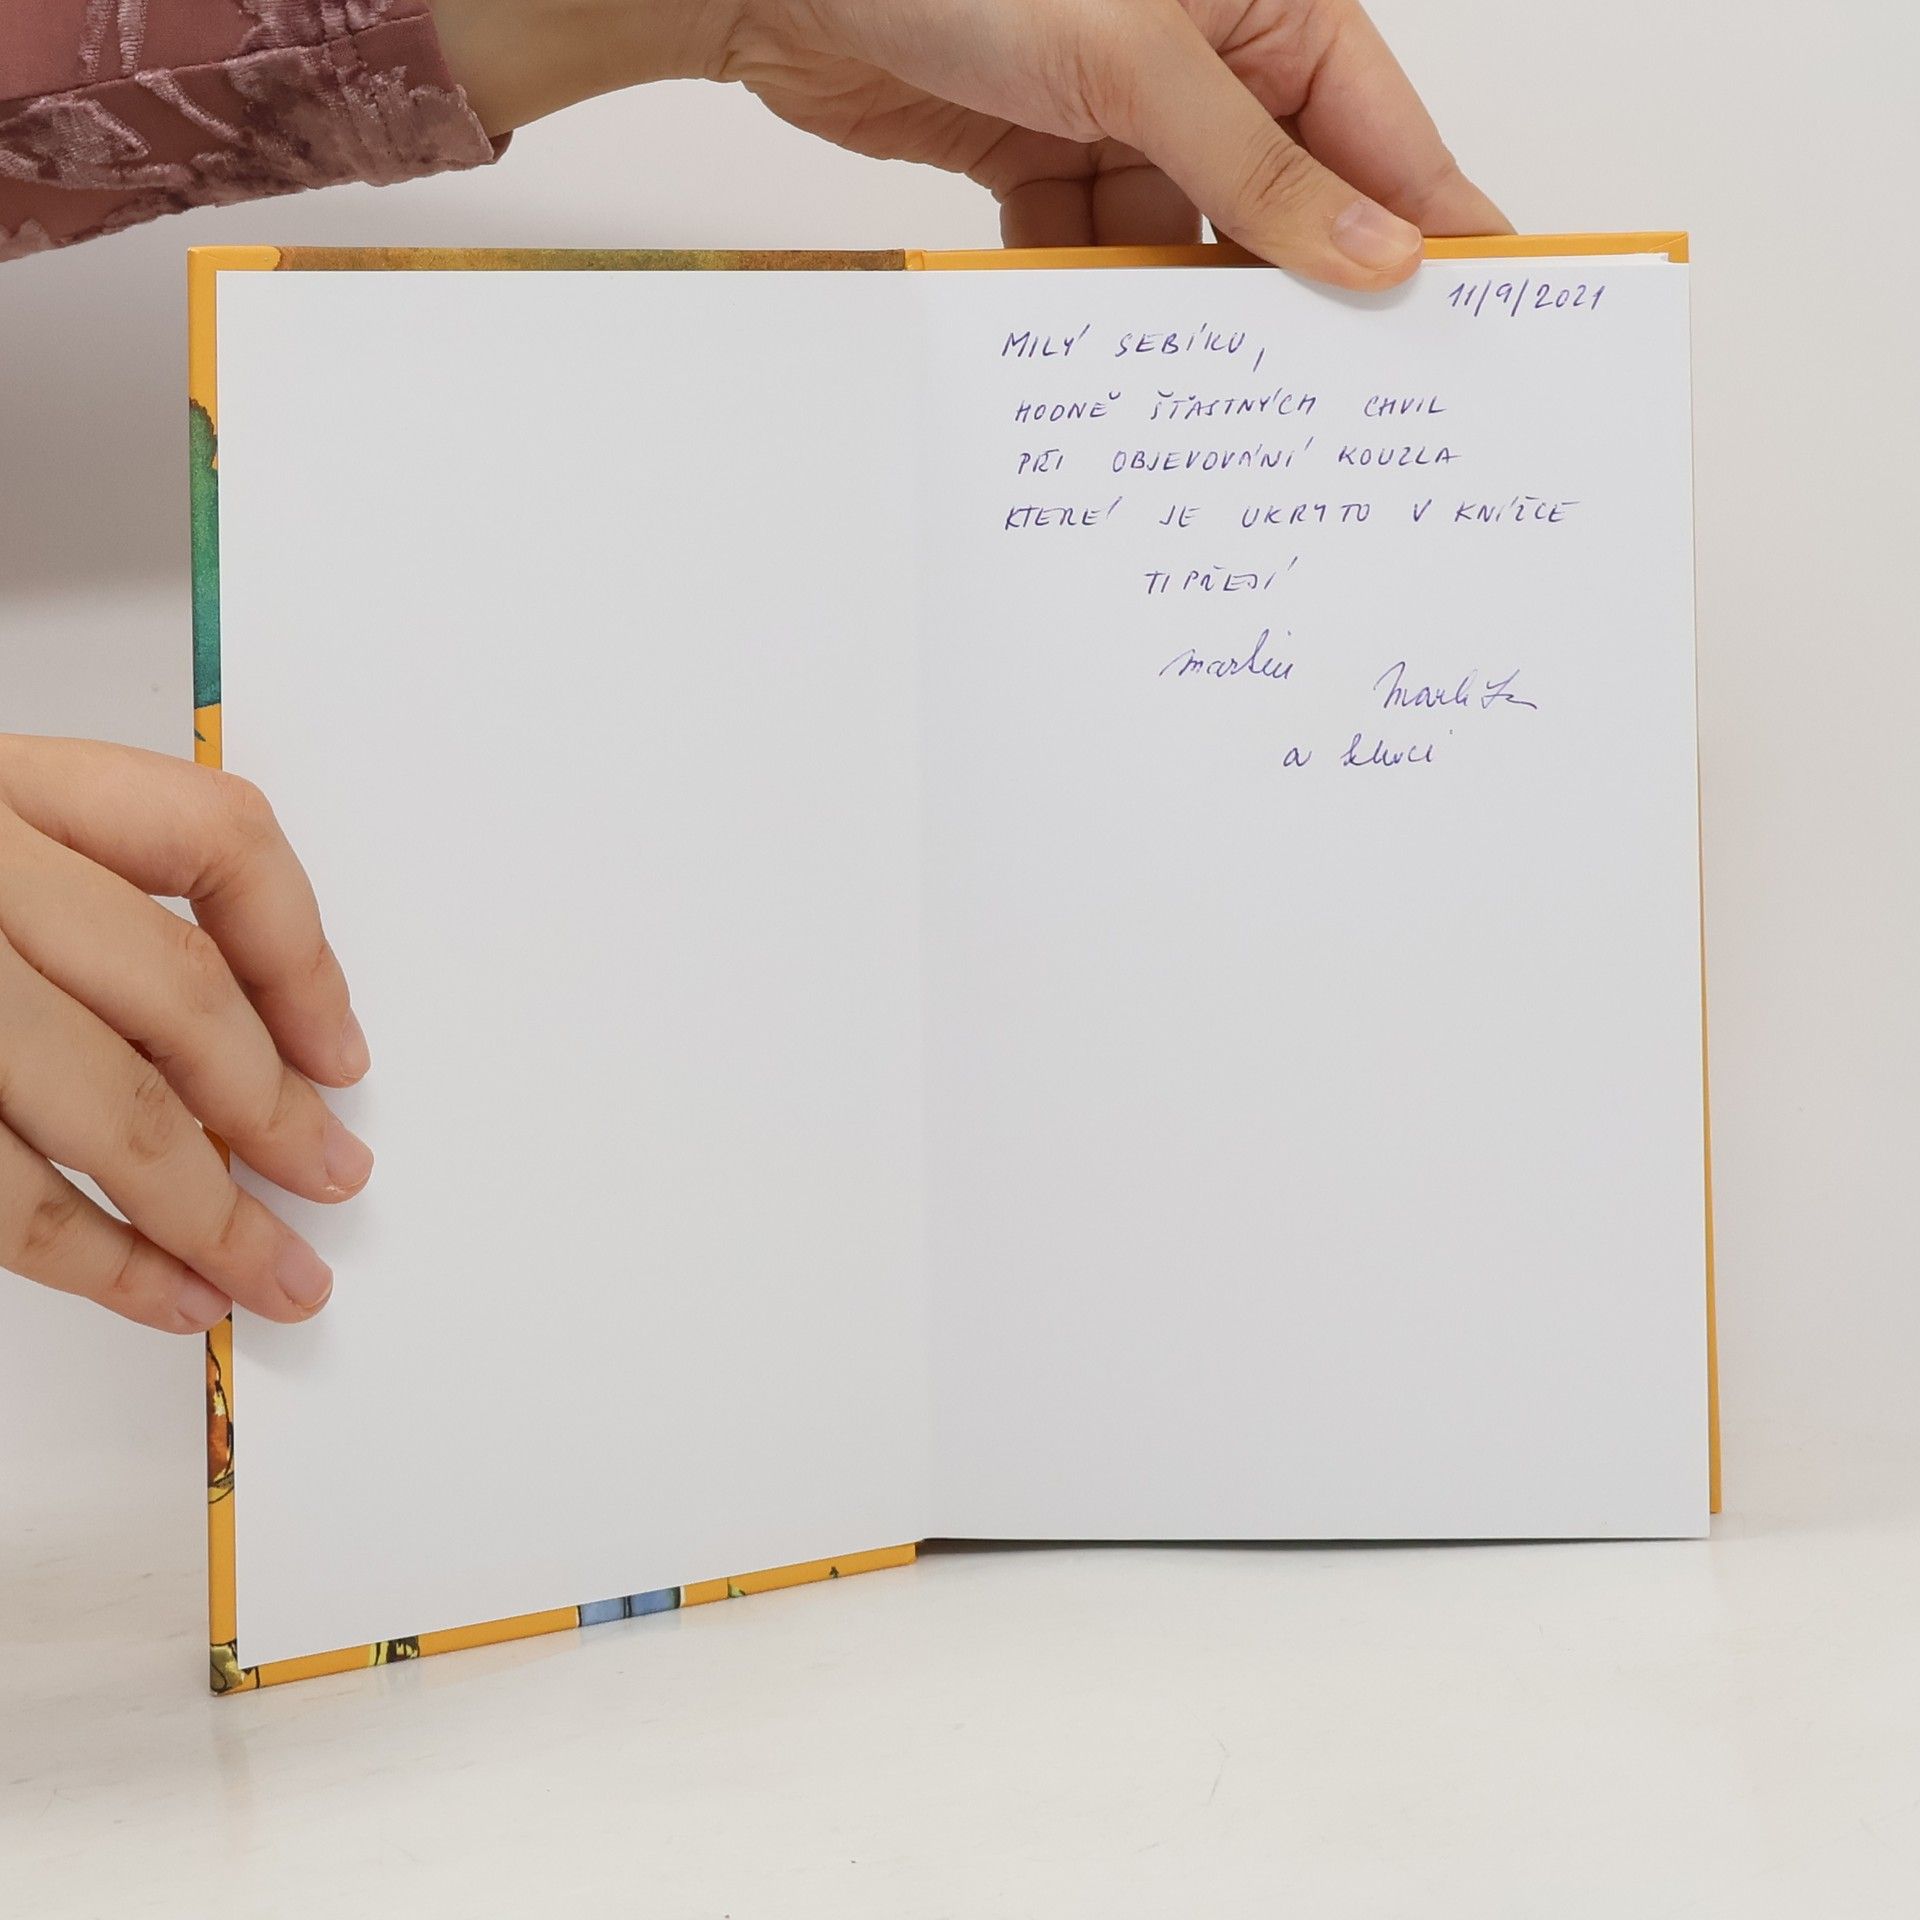 11/9/2021
MILÝ SEBÍKU,
HODNĚ ŠŤASTNÝCH CHVIL
PŘI OBJEVOVÁNÍ KOUZLA
KTERÉ JE UKRYTO V KNÍŽCE
TI PŘEJÍ
Martin
a kluci